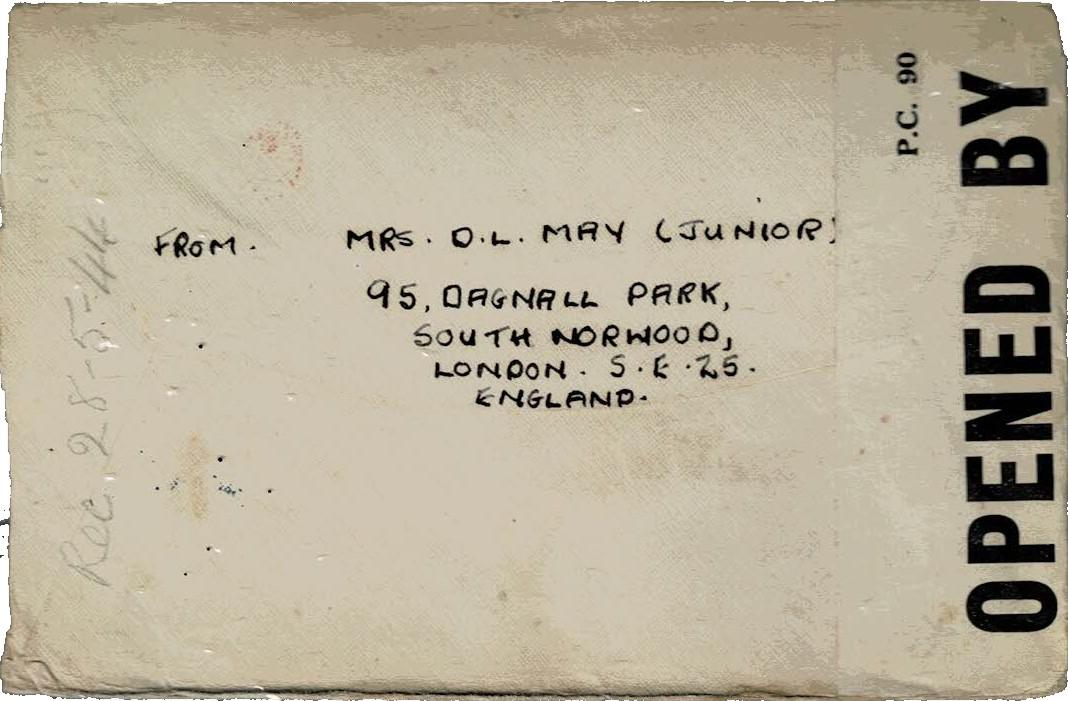 FROM. MRS. D.L. MAY (JUNIOR)
95, DAGNALL PARK,
SOUTH NORWOOD,
LONDON. S.E.25.
ENGLAND.
P.C. 90
OPENED BY
Rec. 28-5-44